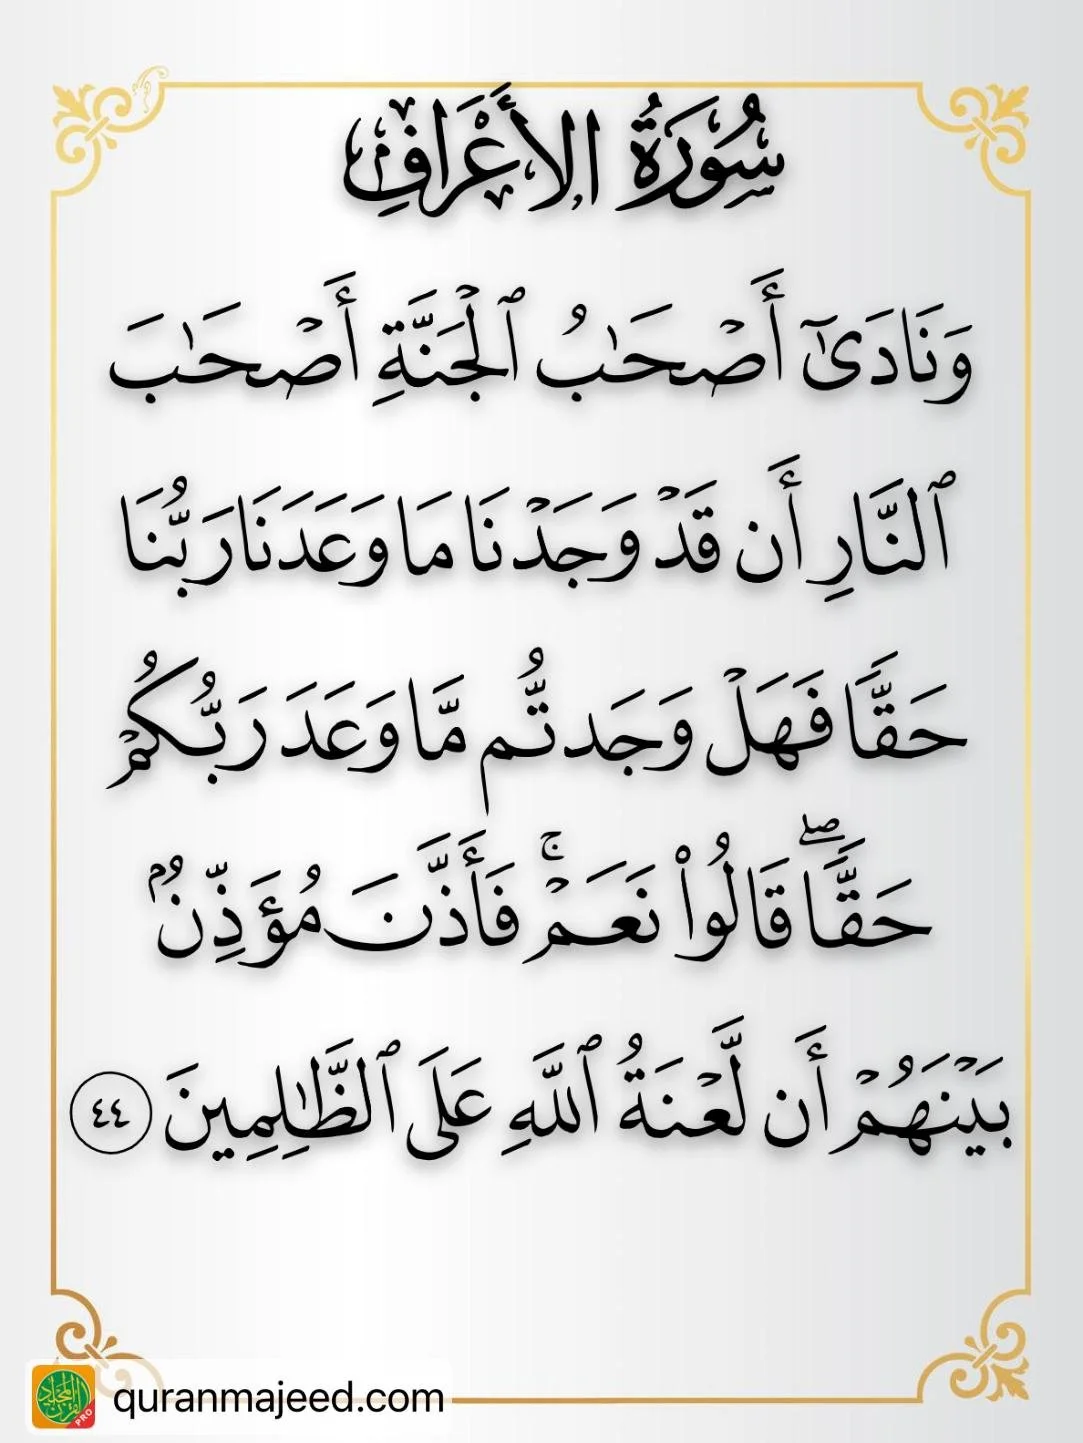 سُورَةُ الأَعْرَافِ
وَنَادَىٰٓ أَصْحَـٰبُ ٱلْجَنَّةِ أَصْحَـٰبَ
ٱلنَّارِ أَن قَدْ وَجَدْنَا مَا وَعَدَنَا رَبُّنَا
حَقًّا فَهَلْ وَجَدتُّم مَّا وَعَدَ رَبُّكُمْ
حَقًّا ۖ قَالُوا۟ نَعَمْ ۚ فَأَذَّنَ مُؤَذِّنٌۢ
بَيْنَهُمْ أَن لَّعْنَةُ ٱللَّهِ عَلَى ٱلظَّـٰلِمِينَ ٤٤
quranmajeed.com